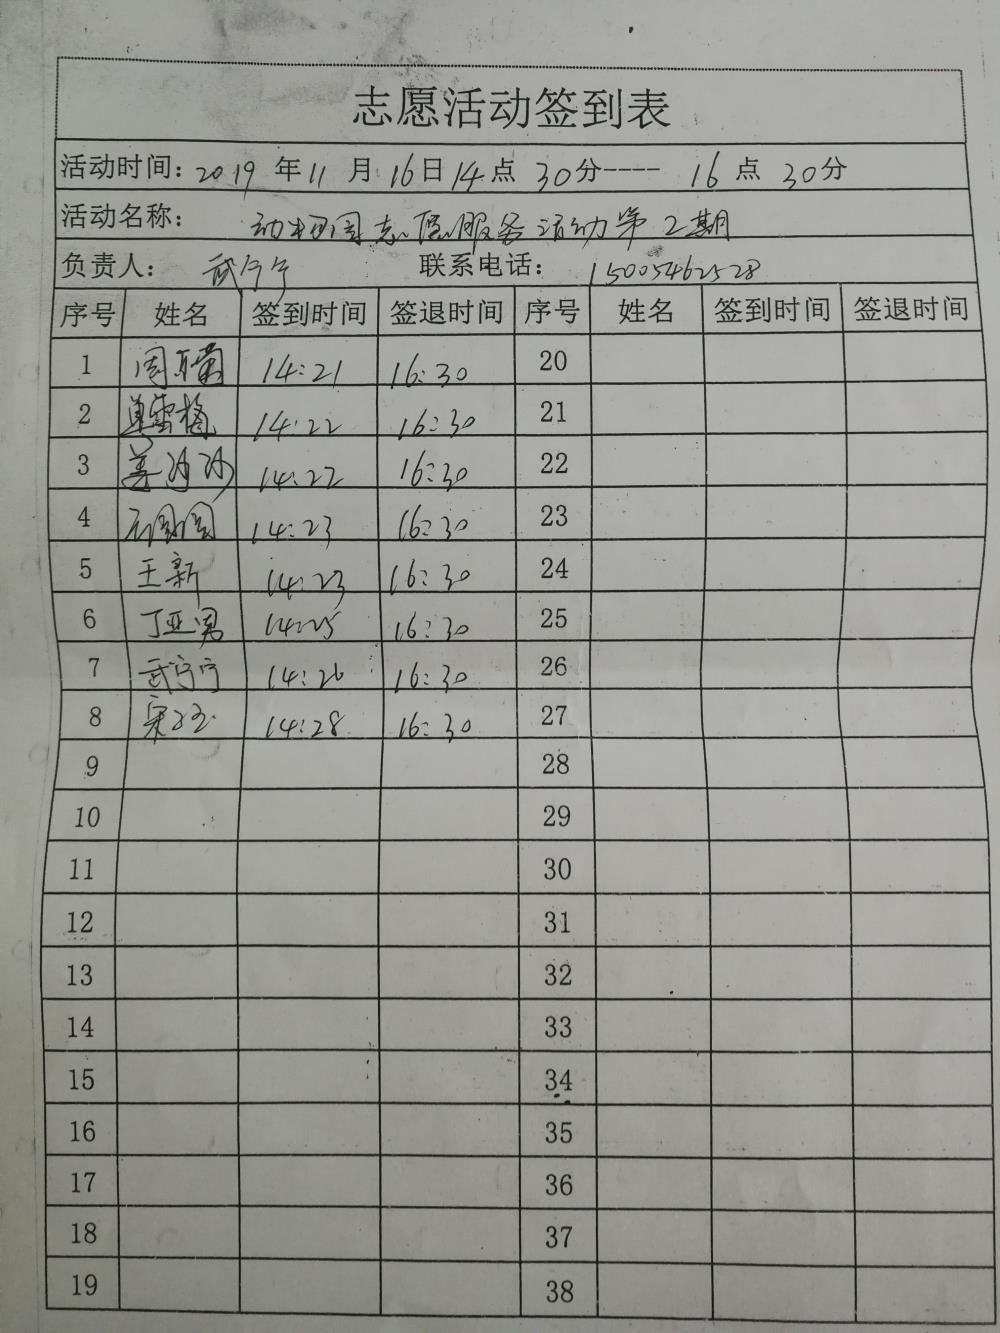 志愿活动签到表
活动时间：2019年11月16日14点30分----16点30分
活动名称：动物园志愿服务活动第2期
负责人：武宁宁 联系电话：15005462528
序号 姓名 签到时间 签退时间 序号 姓名 签到时间 签退时间
1 周 14:21 16:30 20
2 单雪梅 14:22 16:30 21
3 姜 14:22 16:30 22
4 石圆圆 14:23 16:30 23
5 王新 14:23 16:30 24
6 丁亚男 14:25 16:30 25
7 武宁宁 14:26 16:30 26
8 宋 14:28 16:30 27
9 28
10 29
11 30
12 31
13 32
14 33
15 34
16 35
17 36
18 37
19 38